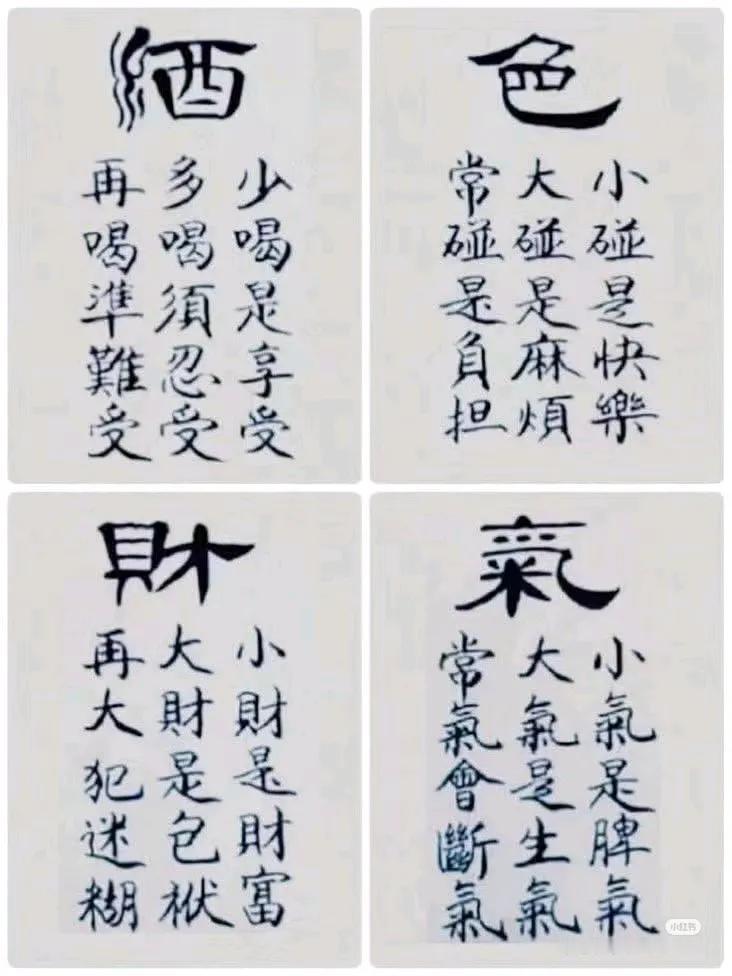 酒
少喝是享受
多喝須忍受
再喝準難受
色
小碰是快樂
大碰是麻煩
常碰是負担
財
小財是財富
大財是包袱
再大犯迷糊
氣
小氣是脾氣
大氣是生氣
常氣會斷氣
小红书